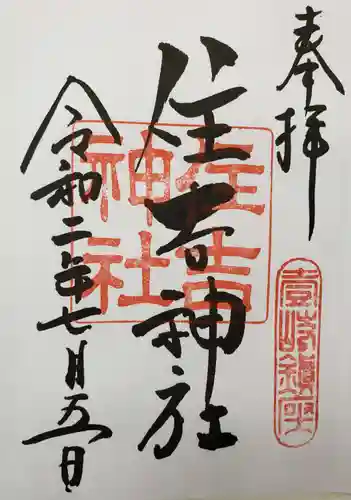 奉拝
壹岐鎮座
住吉神社
住吉神社
令和二年七月五日